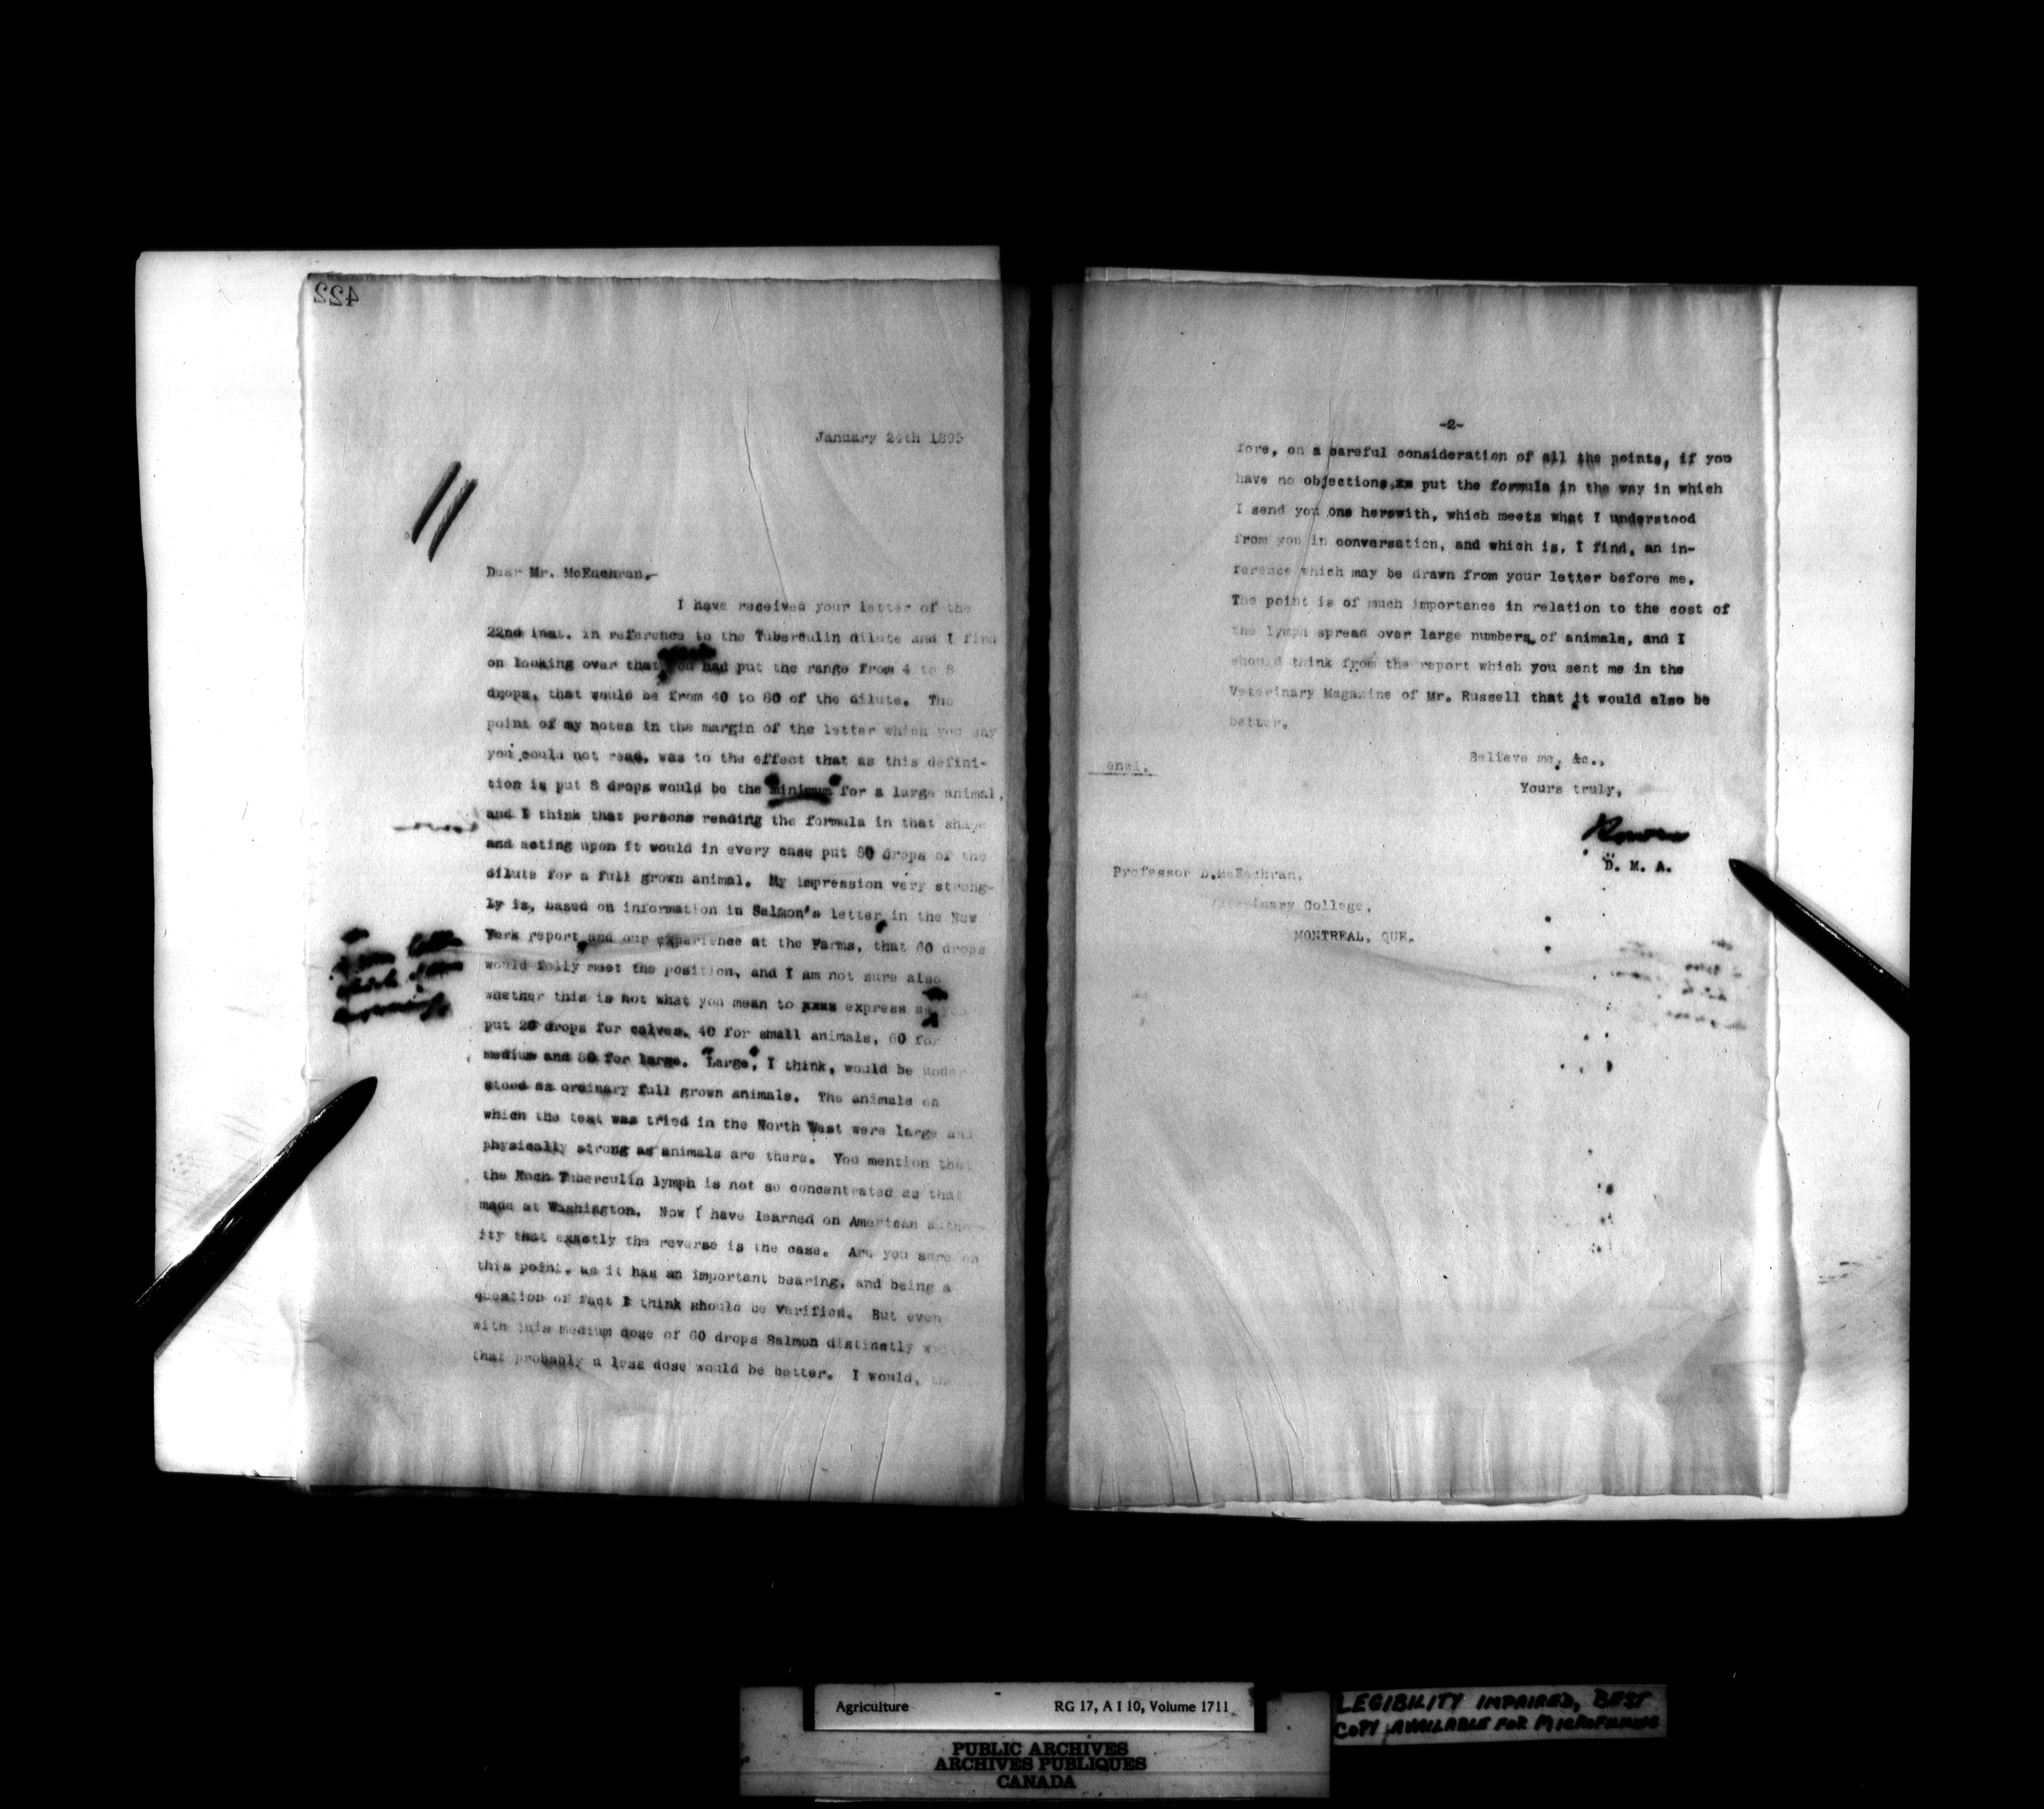 422
January 24th 1895
Dear Mr. McEachran,-
I have received your letter of the
22nd inst. in reference to the Tuberculin dilute and I find
on looking over that you had put the range from 4 to 8
drops, that would be from 40 to 80 of the dilute. The
point of my notes in the margin of the letter which you say
you could not read, was to the effect that as this defini-
tion is put 8 drops would be the minimum for a large animal,
and I think that persons reading the formula in that shape
and acting upon it would in every case put 80 drops of the
dilute for a full grown animal. My impression very strong-
ly is, based on information in Salmon's letter in the New
York report, and our experience at the Farms, that 60 drops
would fully meet the position, and I am not sure also
whether this is not what you mean to xxxx express as you
put 20 drops for calves, 40 for small animals, 60 for
medium and 80 for large. "Large", I think, would be under
stood as ordinary full grown animals. The animals on
which the test was tried in the North West were large and
physically strong as animals are there. You mention that
the Koch Tuberculin lymph is not so concentrated as that
made at Washington. Now I have learned on American author-
ity that exactly the reverse is the case. Are you sure on
this point, as it has an important bearing, and being a
question of fact I think should be verified. But even
with this medium dose of 60 drops Salmon distinctly
that probably a less dose would be better. I would,
-2-
fore, on a careful consideration of all the points, if you
have no objections, put the formula in the way in which
I send you one herewith, which meets what I understood
from you in conversation, and which is, I find, an in-
ference which may be drawn from your letter before me.
The point is of much importance in relation to the cost of
the lymph spread over large numbers of animals, and I
should think from the report which you sent me in the
Veterinary Magazine of Mr. Russell that it would also be
better.
Believe me, &c.,
encl.
Yours truly,
D. M. A.
Professor D. McEachran,
Veterinary College,
MONTREAL, QUE.
Agriculture RG 17, A I 10, Volume 1711
LEGIBILITY IMPAIRED, BEST
COPY AVAILABLE FOR MICROFILMING
PUBLIC ARCHIVES
ARCHIVES PUBLIQUES
CANADA